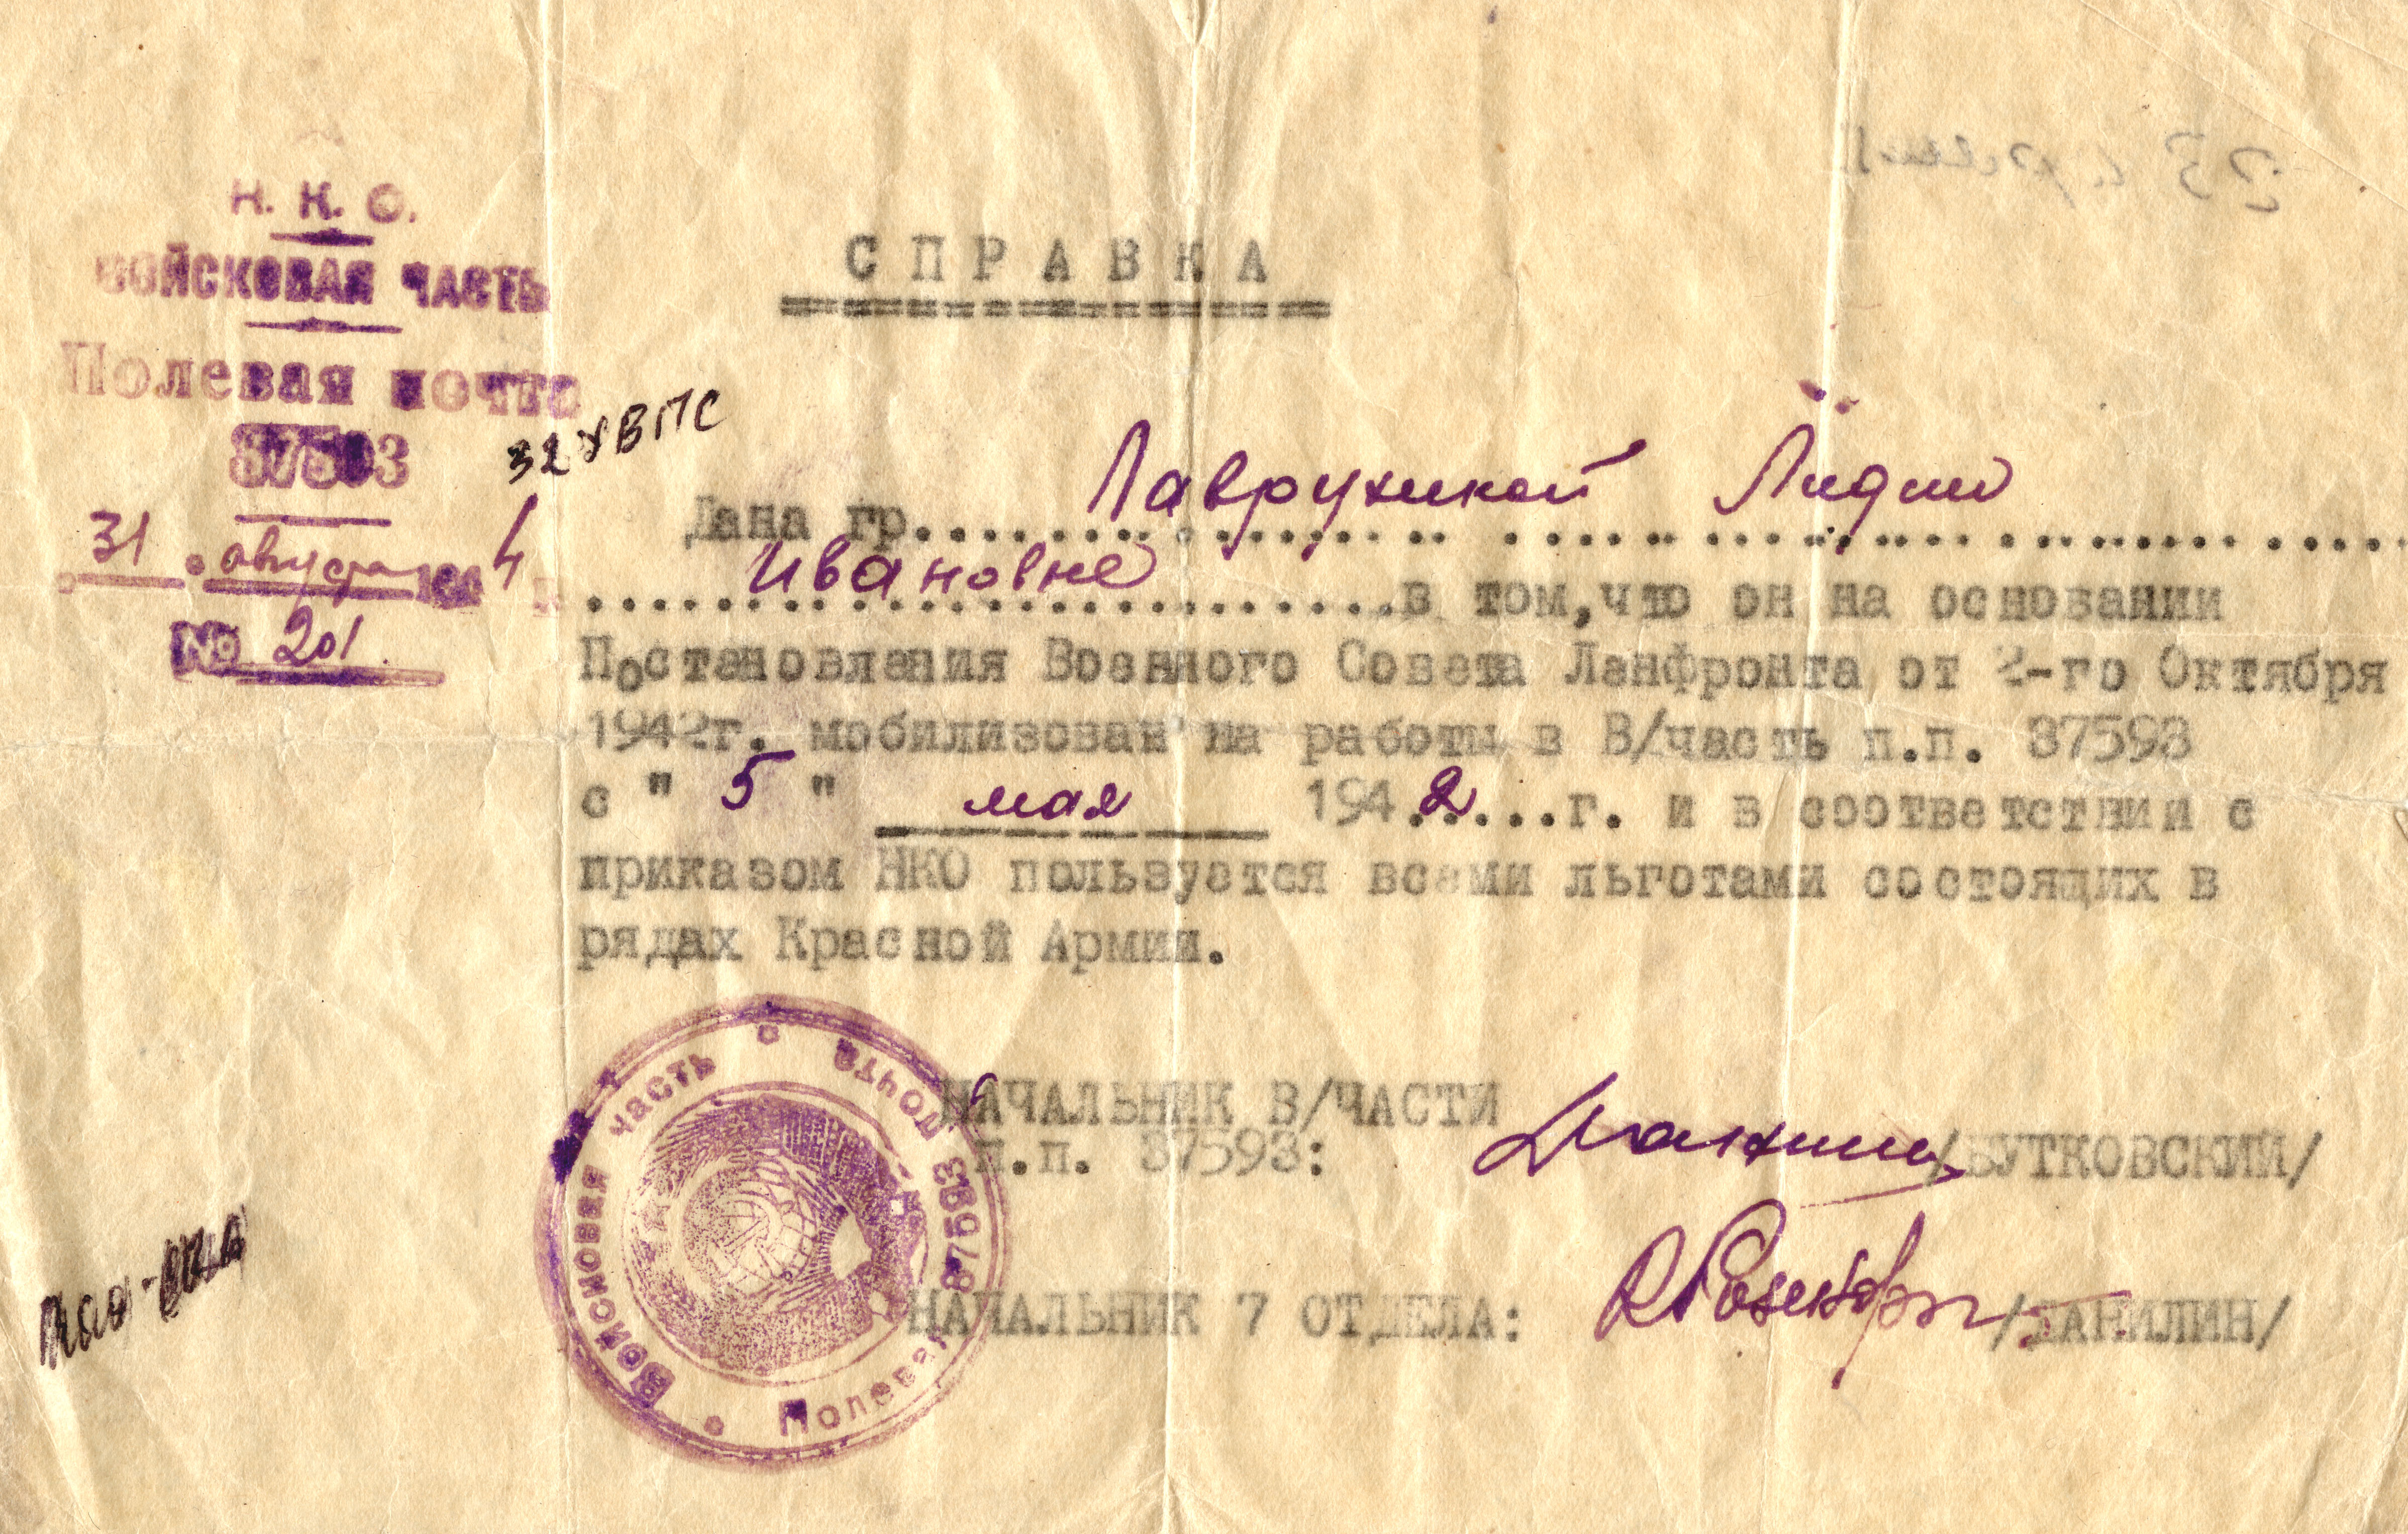 Н. К. О.
ВОЙСКОВАЯ ЧАСТЬ
Полевая почта
87593
32 УВПС
31 августа 194 4 г.
№ 201.
СПРАВКА
Дана гр. Лаврухиной Лидии
Ивановне в том, что он на основании
Постановления Военного Совета Ленфронта от 2-го Октября
1942г. мобилизован на работы в В/часть п.п. 87593
с " 5 " мая 1942 г. и в соответствии с
приказом НКО пользуется всеми льготами состоящих в
рядах Красной Армии.
НАЧАЛЬНИК В/ЧАСТИ
п.п. 87593: /БУТКОВСКИЙ/
НАЧАЛЬНИК 7 ОТДЕЛА: /ДАНИЛИН/
Войсковая часть * Полевая почта 87593 *